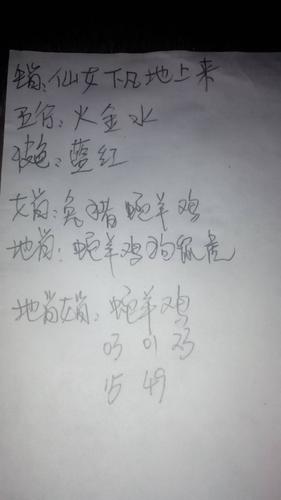 生肖：仙女下凡地上来
五行：火金水
波色：蓝红
女肖：兔猪蛇羊鸡
地肖：蛇羊鸡狗鼠虎
地肖女肖：蛇羊鸡
03 01 23
15 49